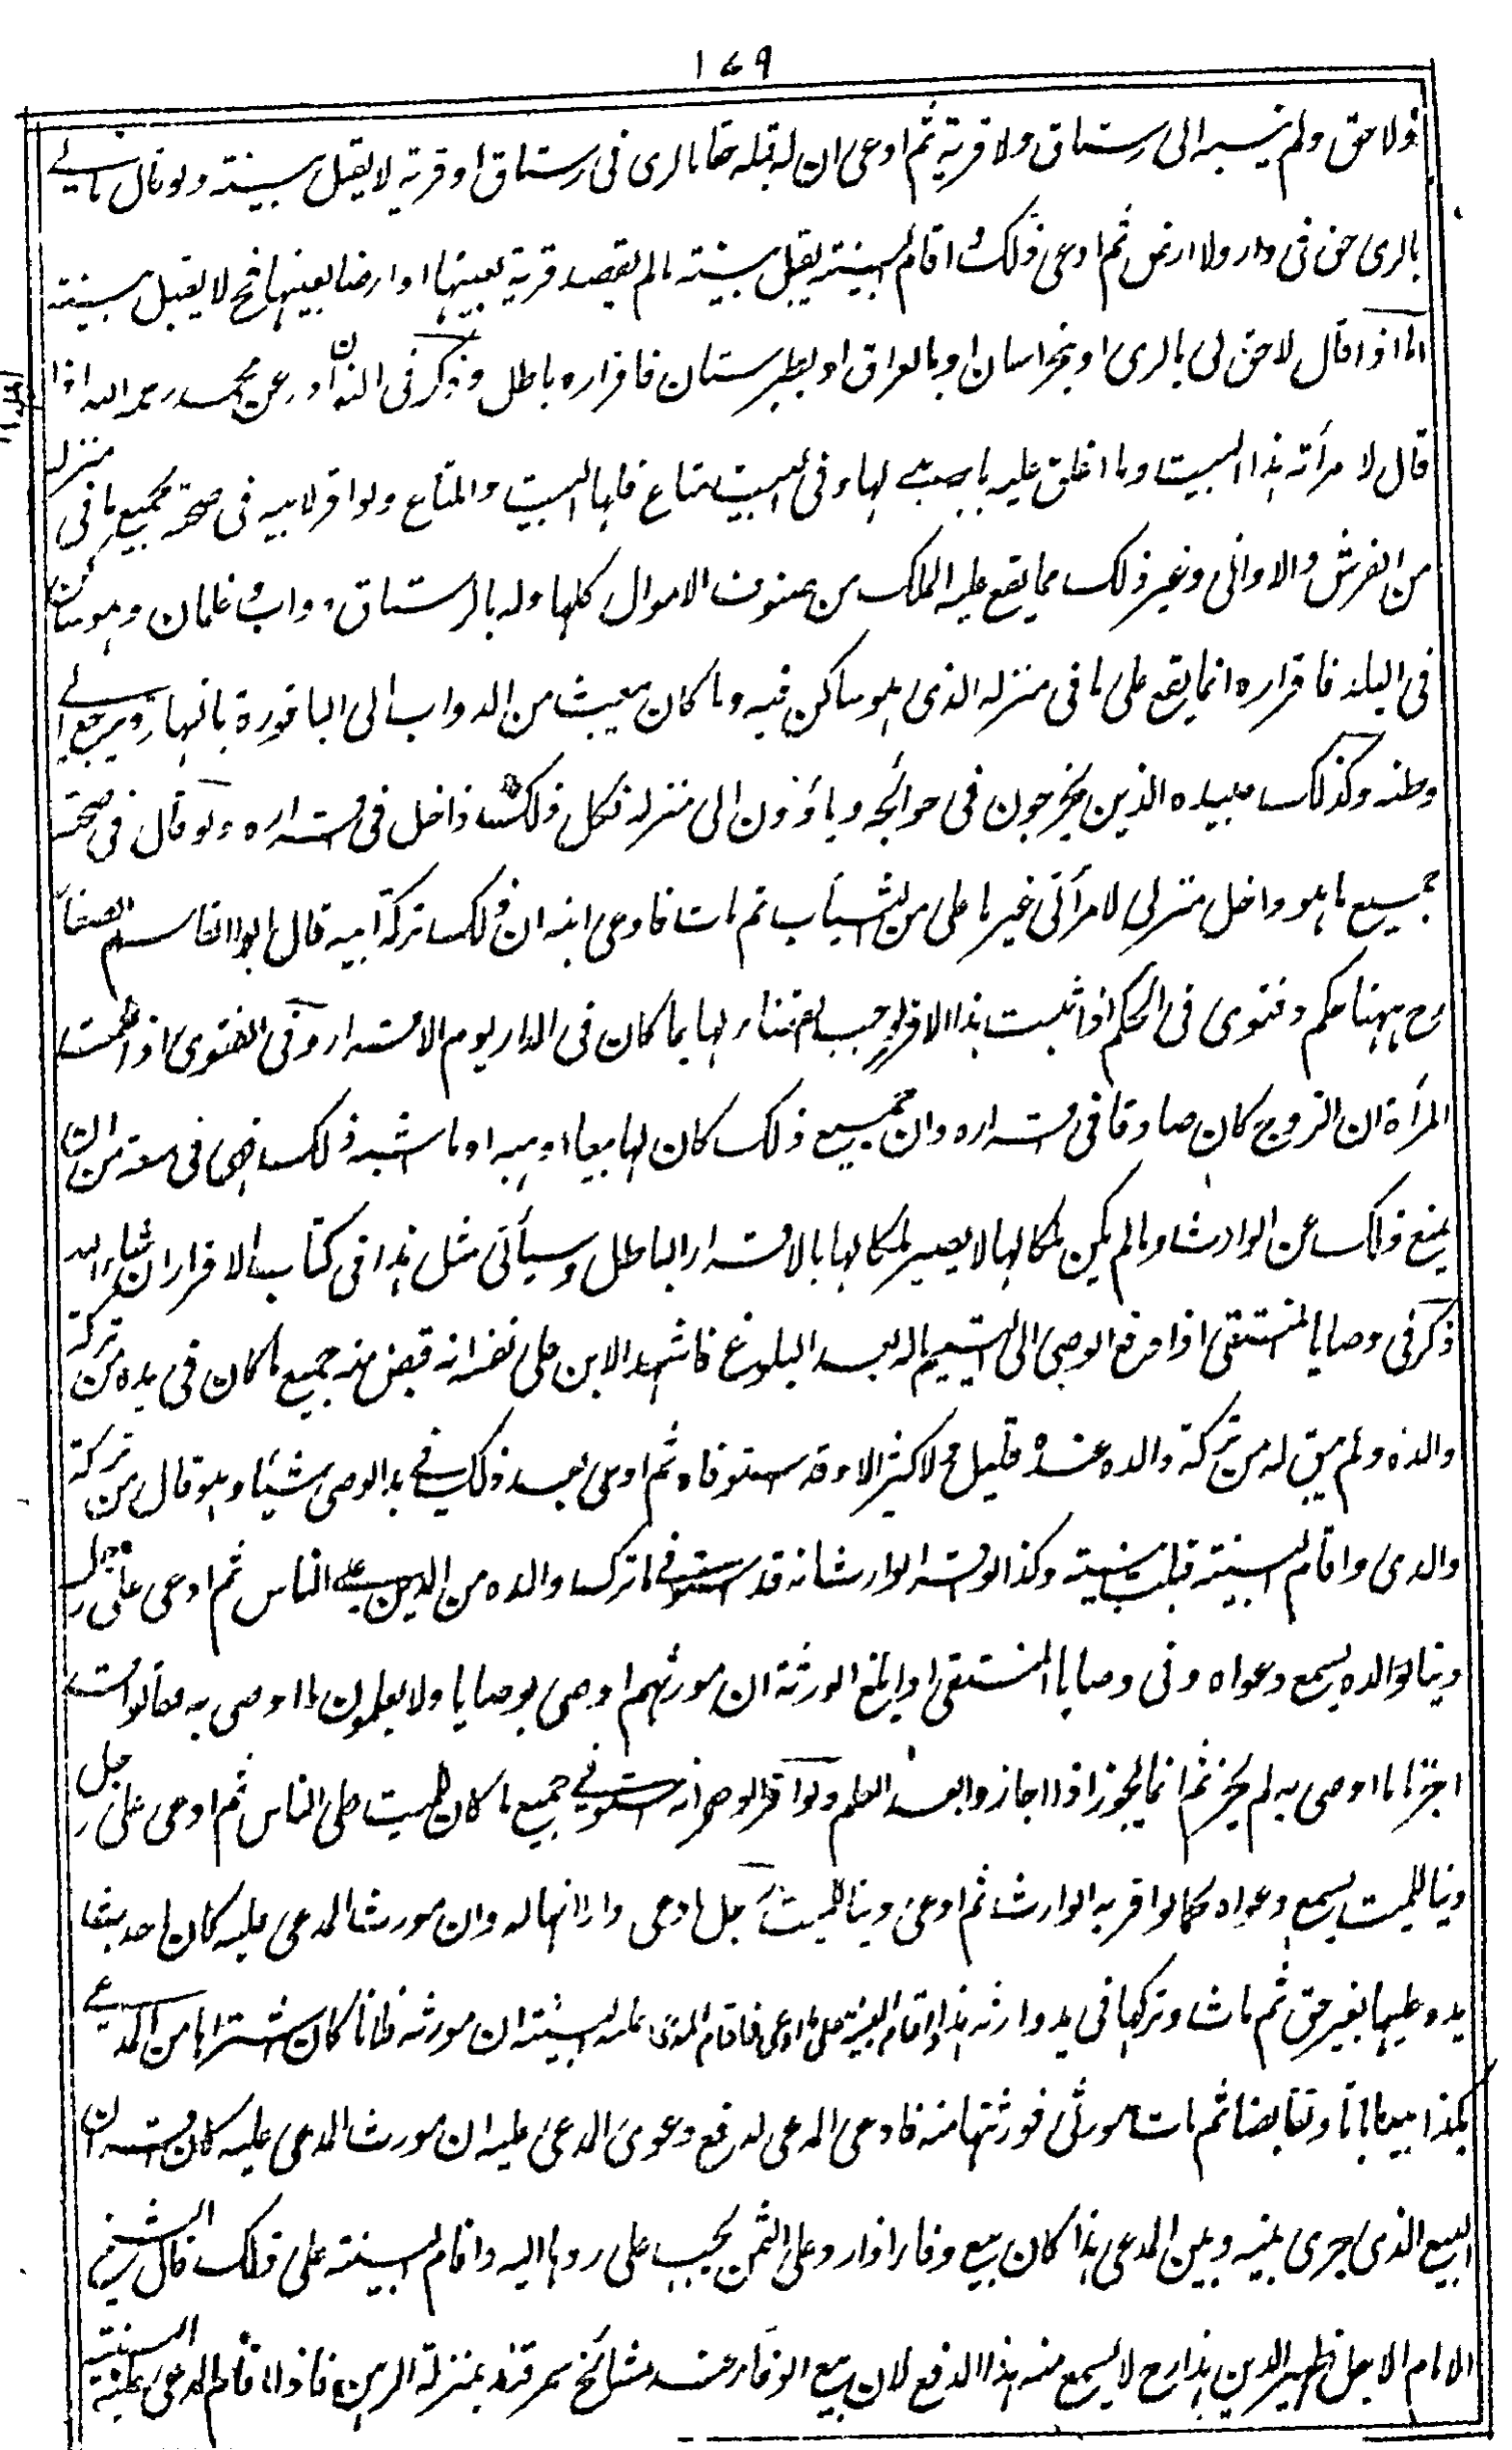 ١٦٩
ولا حق ولم ينسبه الى رستاق ولا قرية ثم ادعى ان له قبله حقا بالرى فى رستاق او قرية لا يقبل بينته ولو قال مالي
بالرى حق فى دار ولا ارض ثم ادعى ذلك واقام البينة يقبل بينته مالم يقصد قرية بعينها او ارضا بعينها فح لا يقبل بينته
اما اذا قال لا حق لى بالرى او بخراسان او بالعراق او بطبرستان فاقراره باطل وذكر فى النوادر عن محمد رحمه الله اذا
قال لامرأته هذا البيت وما اغلق عليه بابه لها وفى البيت متاع فلها البيت والمتاع ولو اقر لابنه فى صحته بجميع ما فى منزله
من الفرش والاوانى وغير ذلك مما يقع عليه الملك من صنوف الاموال كلها وله بالرستاق دواب وغلمان وهو ساكن
فى البلد فاقراره انما يقع على ما فى منزله الذى هو ساكن فيه وما كان يبعث من الدواب الى الباقورة بالنهار ويرجع الى
وطنه وكذلك عبيده الذين يخرجون فى حوائجه ويأوون الى منزله فكل ذلك داخل فى اقراره ولو قال فى صحته
جميع ما هو داخل منزلى لامرأتى غير ما على من الثياب ثم مات فادعى ابنه ان ذلك تركة ابيه قال ابو القاسم الصفار
رح ههنا حكم وفتوى فى الحكم اذا ثبت هذا الاقرار وجب القضاء لها بما كان فى الدار يوم الاقرار وفى الفتوى اذا علمت
المرأة ان الزوج كان صادقا فى اقراره وان جميع ذلك كان لها بيعا او هبة او ما اشبه ذلك فهى فى سعة من ان
يمنع ذلك عن الوارث وما لم يكن ملكا لها لا يصير ملكا لها بالاقرار الباطل وسيأتى مثل هذا فى كتاب الاقرار ان شاء الله
ذكر فى وصايا المنتقى اذا دفع الوصى الى اليتيم ماله بعد البلوغ فاشهد الابن على نفسه انه قبض منه جميع ما كان فى يده من تركة
والده ولم يبق له من تركة والده عنده قليل ولا كثير الا وقد استوفاه ثم ادعى بعد ذلك في يد الوصى شيئا وهو قال من تركة
والدى واقام البينة قبلت بينته وكذا لو اقر الوارث انه قد استوفى ما ترك والده من الدين على الناس ثم ادعى على رجل
دينا لوالده يسمع دعواه وفى وصايا المنتقى اذا بلغ الورثة ان مورثهم اوصى بوصايا ولا يعلمون ما اوصى به فقالوا قد
اجزنا ما اوصى به لم يجز ثم انما يجوز اذا اجازوا بعد العلم ولو اقر الوصى انه استوفى جميع ما كان للميت على الناس ثم ادعى على رجل
دينا للميت يسمع دعواه كما لو اقر به الوارث ثم ادعى دينا للميت رجل ادعى دارا انها له وان مورث المدعى عليه كان احدث
يده عليها بغير حق ثم مات وتركها فى يد وارثه هذا واقام البينة على ما ادعى فاقام المدعى عليه البينة ان مورثه فلانا كان اشتراها من المدعى
بكذا بيعا باتا وتقابضا ثم مات مورثى فورثتها منه فادعى المدعى لدفع دعوى المدعى عليه ان مورث المدعى عليه كان اقر ان
البيع الذى جرى بينه وبين المدعى هذا كان بيع وفاء اذا رد على الثمن يجب على ردها اليه واقام البينة على ذلك قال الشيخ
الامام الاجل ظهير الدين هذا رح لا يسمع منه هذا الدفع لان بيع الوفاء عند مشائخ سمرقند بمنزلة الرهن فاذا اقام المدعى عليه البينة